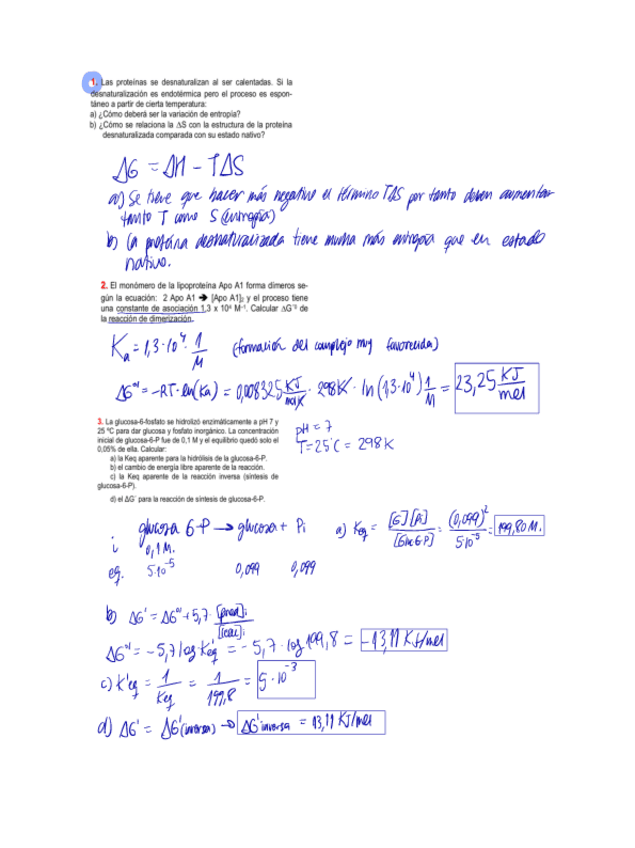 1. Las proteínas se desnaturalizan al ser calentadas. Si la
desnaturalización es endotérmica pero el proceso es espon-
táneo a partir de cierta temperatura:
a) ¿Cómo deberá ser la variación de entropía?
b) ¿Cómo se relaciona la ΔS con la estructura de la proteína
desnaturalizada comparada con su estado nativo?
ΔG = ΔH - TΔS
a) Se tiene que hacer más negativo el término TΔS por tanto deben aumentar
tanto T como S (entropía)
b) La proteína desnaturalizada tiene mucha más entropía que en estado
nativo.
2. El monómero de la lipoproteína Apo A1 forma dímeros se-
gún la ecuación: 2 Apo A1 ➔ [Apo A1]₂ y el proceso tiene
una constante de asociación 1,3 x 10⁴ M⁻¹. Calcular ΔG°' de
la reacción de dimerización.
Ka = 1,3·10⁴ · 1/M (formación del complejo muy favorecida)
ΔG°' = -RT·ln(Ka) = 0,008325 KJ/mol·K · 298K · ln(1,3·10⁴) 1/M = 23,25 KJ/mol
3. La glucosa-6-fosfato se hidrolizó enzimáticamente a pH 7 y
25 ºC para dar glucosa y fosfato inorgánico. La concentración
inicial de glucosa-6-P fue de 0,1 M y el equilibrio quedó solo el
0,05% de ella. Calcular:
pH = 7
T = 25°C = 298K
a) la Keq aparente para la hidrólisis de la glucosa-6-P.
b) el cambio de energía libre aparente de la reacción.
c) la Keq aparente de la reacción inversa (síntesis de
glucosa-6-P).
d) el ΔG' para la reacción de síntesis de glucosa-6-P.
glucosa 6-P → glucosa + Pi
i 0,1 M.
eq. 5·10⁻⁵ 0,099 0,099
a) Keq = [G][Pi]/[Gluc6P] = (0,099)²/5·10⁻⁵ = 199,80 M.
b) ΔG' = ΔG°' + 5,7 · [prod]i/[reac]i
ΔG°' = -5,7 log K'eq = -5,7 · log 199,8 = -13,11 KJ/mol
c) K'eq = 1/Keq = 1/199,8 = 5·10⁻³
d) ΔG' = ΔG'(inversa) → ΔG' inversa = 13,11 KJ/mol